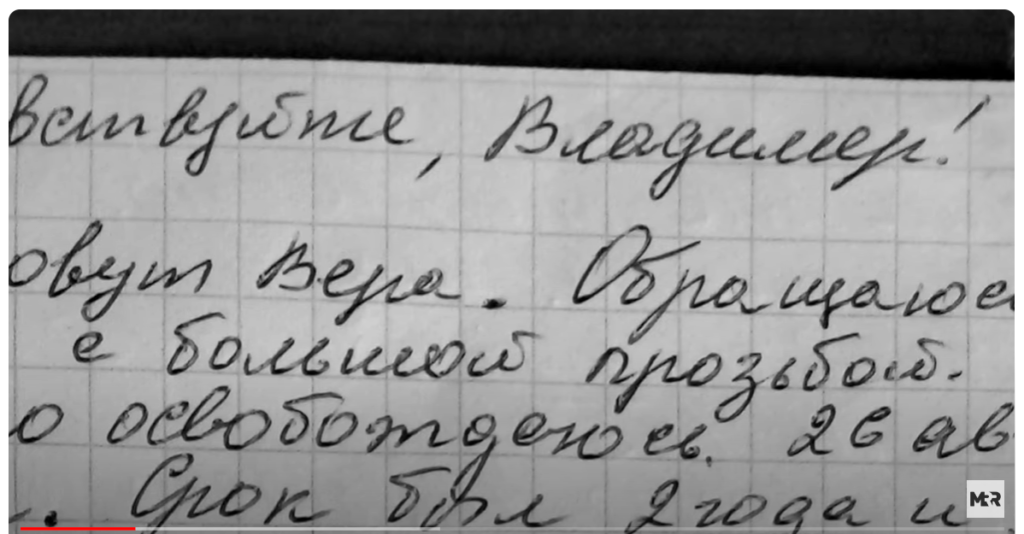 вствуйте, Владимер!
овут Вера. Обращаюс
с большой прозьбой.
о освобождаюсь. 26 ав
. Срок был 2 года и
MER